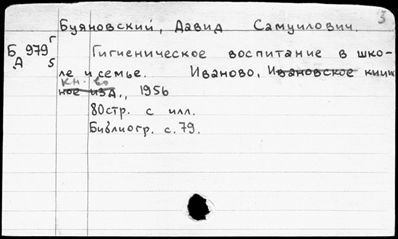 3
Буяновский, Давид Самуилович.
Б 979 Г Гигиеническое воспитание в шко-
Д 5 ле и семье. Иваново, Ивановское книж
кн. во
ное изд., 1956
80стр. с илл.
Библиогр. с. 79.